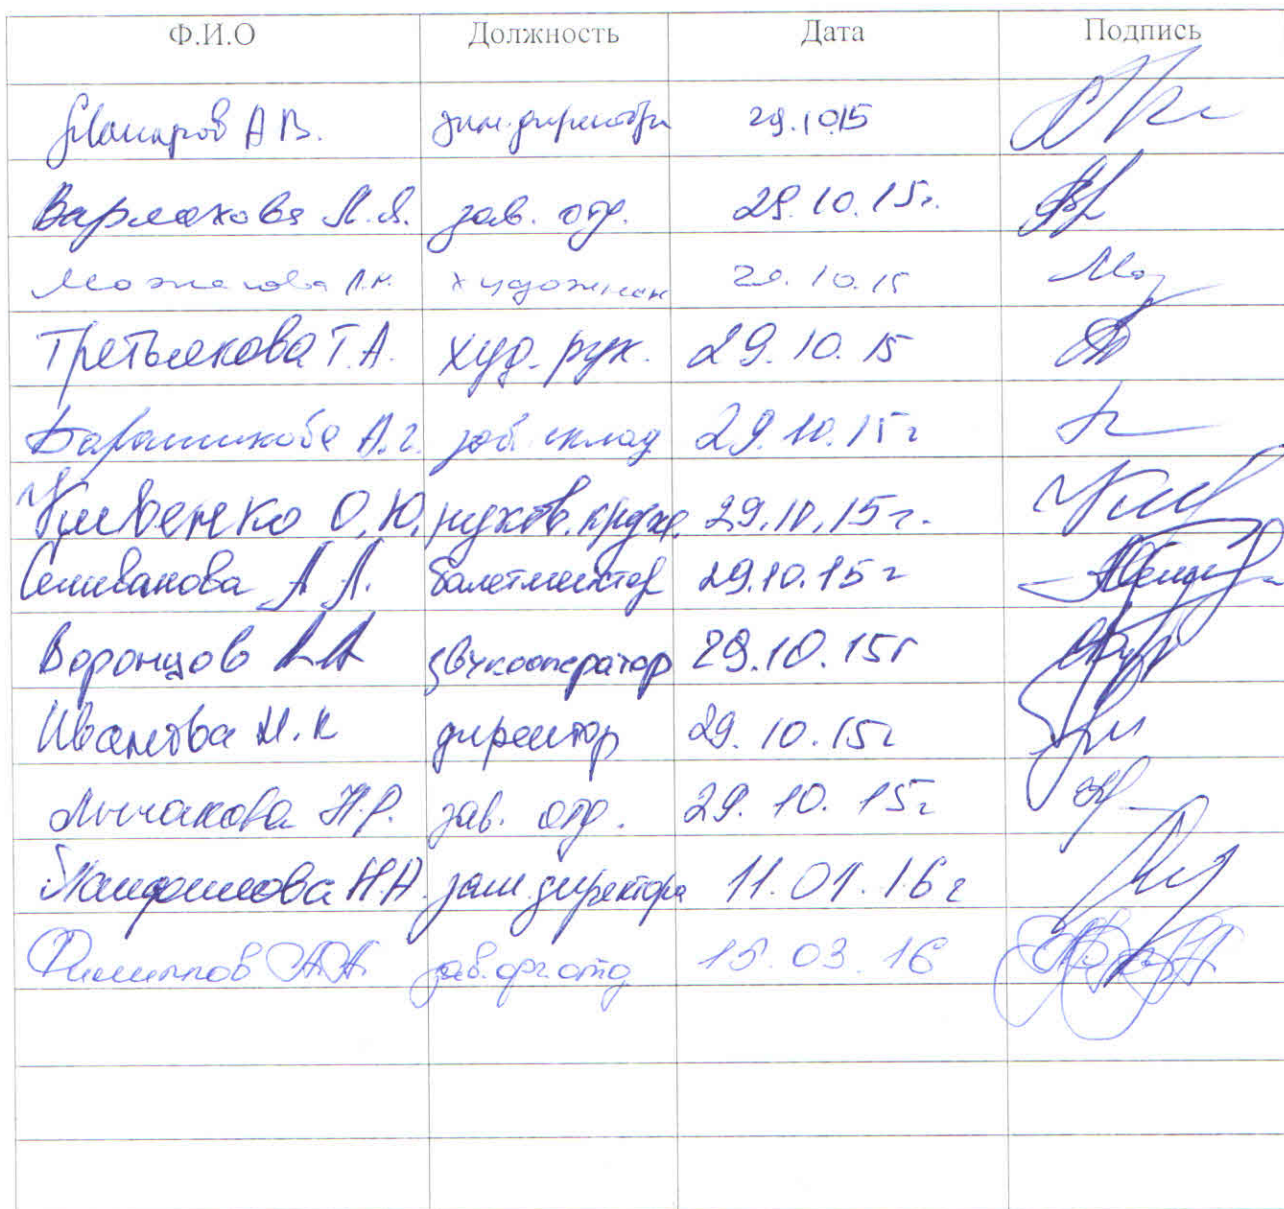 Ф.И.О Должность Дата Подпись
А В. зам. директора 29.10.15
Варлахова Л.Я. зав. отд. 29.10.15г.
художник 29.10.15
Третьякова Т.А. худ. рук. 29.10.15
Барашкова А.г. зав. склад 29.10.15г
О.Ю. руков. круж. 29.10.15г.
Селиванова А Л. балетмейстер 29.10.15г
Воронцов звукооператор 29.10.15г
Иванова И.К директор 29.10.15г
Н.Р. зав. отд. 29.10.15г
Н.А. зам. директора 11.01.16г
Филиппов АА зав. орг отд 15.03.16